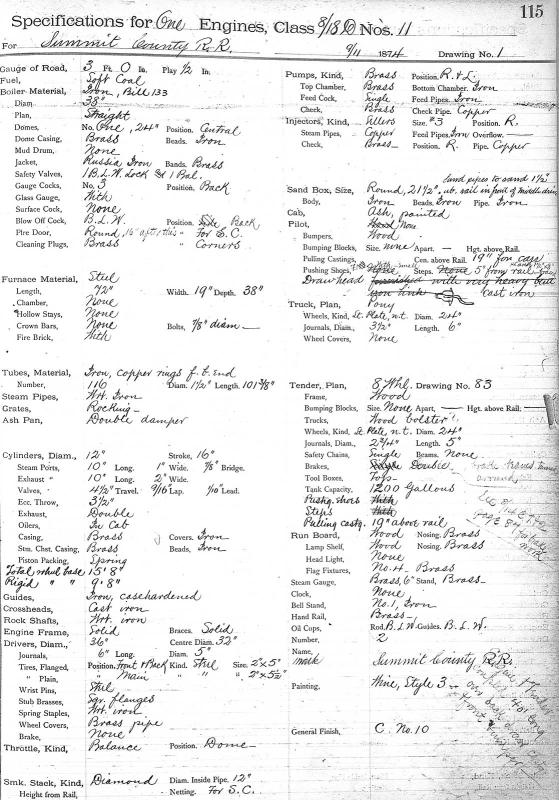 115
Specifications for One Engines, Class 8/18 D Nos. 11
For Summit County R.R. 9/11 1874 Drawing No. 1
Gauge of Road, 3 Ft. 0 In. Play 1/2 In.
Fuel, Soft Coal
Boiler Material, Iron, Bill 133
Diam. 38"
Plan, Straight
Domes, No. One, 24" Position. Central
Dome Casing, Brass Beads. Iron
Mud Drum, None
Jacket, Russia Iron Bands. Brass
Safety Valves, 1 B.L.W. Lock & 1 Bal.
Gauge Cocks, No. 3 Position, Back
Glass Gauge, With
Surface Cock, None
Blow Off Cock, B.L.W. Position. Back
Fire Door, Round, For S.C.
Cleaning Plugs, Brass " Corners
Furnace Material, Steel
Length, 72" Width. 19" Depth. 38"
Chamber, None
Hollow Stays, None
Crown Bars, None Bolts, 7/8" diam
Fire Brick, With
Tubes, Material, Iron, copper rings f.t. end
Number, 116 Diam. 1 1/2" Length. 101 3/8"
Steam Pipes, Wrt. Iron
Grates, Rocking
Ash Pan, Double damper
Cylinders, Diam., 12" Stroke, 16"
Steam Ports, 10" Long. 1" Wide. 7/8" Bridge.
Exhaust " 10" Long. 2" Wide.
Valves, 4 1/2" Travel. 9/16" Lap. 1/10" Lead.
Ecc. Throw, 3 1/2"
Exhaust, Double
Oilers, In Cab
Casing, Brass Covers. Iron
Stm. Chst. Casing, Brass Beads, Iron
Piston Packing, Spring
Total wheel base 15'8"
Rigid " " 9'8"
Guides, Iron, casehardened
Crossheads, Cast iron
Rock Shafts, Wrt. iron
Engine Frame, Solid Braces. Solid
Drivers, Diam., 36" Centre Diam. 32"
Journals, 6" Long. Diam. 5"
Tires, Flanged, Position, Front & Back Kind. Steel Size. 2" x 5"
" Plain, " Main " " " 2" x 5 1/2"
Wrist Pins, Steel
Stub Brasses, Sqr. flanges
Spring Staples, Wrt. iron
Wheel Covers, Brass pipe
Brake, None
Throttle, Kind, Balance Position. Dome
Smk. Stack, Kind, Diamond Diam. Inside Pipe. 12"
Height from Rail, Netting. For S.C.
Pumps, Kind, Brass Position. R. & L.
Top Chamber, Brass Bottom Chamber. Iron
Feed Cock, Single Feed Pipes. Iron
Check, Brass Check Pipe. Copper
Injectors, Kind, Sellers Size. #3 Position, R.
Steam Pipes, Copper Feed Pipes. Iron Overflow.
Check, Brass Position, R. Pipe. Copper
Sand pipes to sand 1 1/2"
Sand Box, Size, Round, 21 1/2", rail in front of middle drivers
Body, Iron Beads. Iron Pipe. Iron
Cab, Ash, painted
Pilot, None
Bumpers, Wood
Bumping Blocks, Size None Apart, Hgt. above Rail,
Pulling Castings, Cen. above Rail. 19" for cars
Pushing Shoes, None Steps. None 5" from rail
Drawhead with very heavy
iron link cast iron
Truck, Plan, Pony
Wheels, Kind, St. Plate, n.t. Diam. 24"
Journals, Diam., 3 1/2" Length. 6"
Wheel Covers, None
Tender, Plan, 8 Whl. Drawing No. 83
Frame, Wood
Bumping Blocks, Size None Apart, Hgt. above Rail,
Trucks, Wood bolster
Wheels, Kind, St. Plate, n.t. Diam. 24"
Journals, Diam., 2 3/4" Length. 5"
Safety Chains, Single Beams. None
Brakes, Single Double
Tool Boxes, Top
Tank Capacity, 1200 Gallons
Pushg. shoes With
Steps With
Pulling castg. 19" above rail
Run Board, Wood Nosing. Brass
Lamp Shelf, Wood Nosing. Brass
Head Light, None
Flag Fixtures, No. 4 Brass
Steam Gauge, Brass, 6" Stand, Brass
Clock, None
Bell Stand, No. 1, Iron
Hand Rail, Brass
Oil Cups, Rod. B.L.W. Guides. B.L.W.
Number, 2
Name,
mark Summit County R.R.
Painting, Wine, Style 3
General Finish, C. No. 10